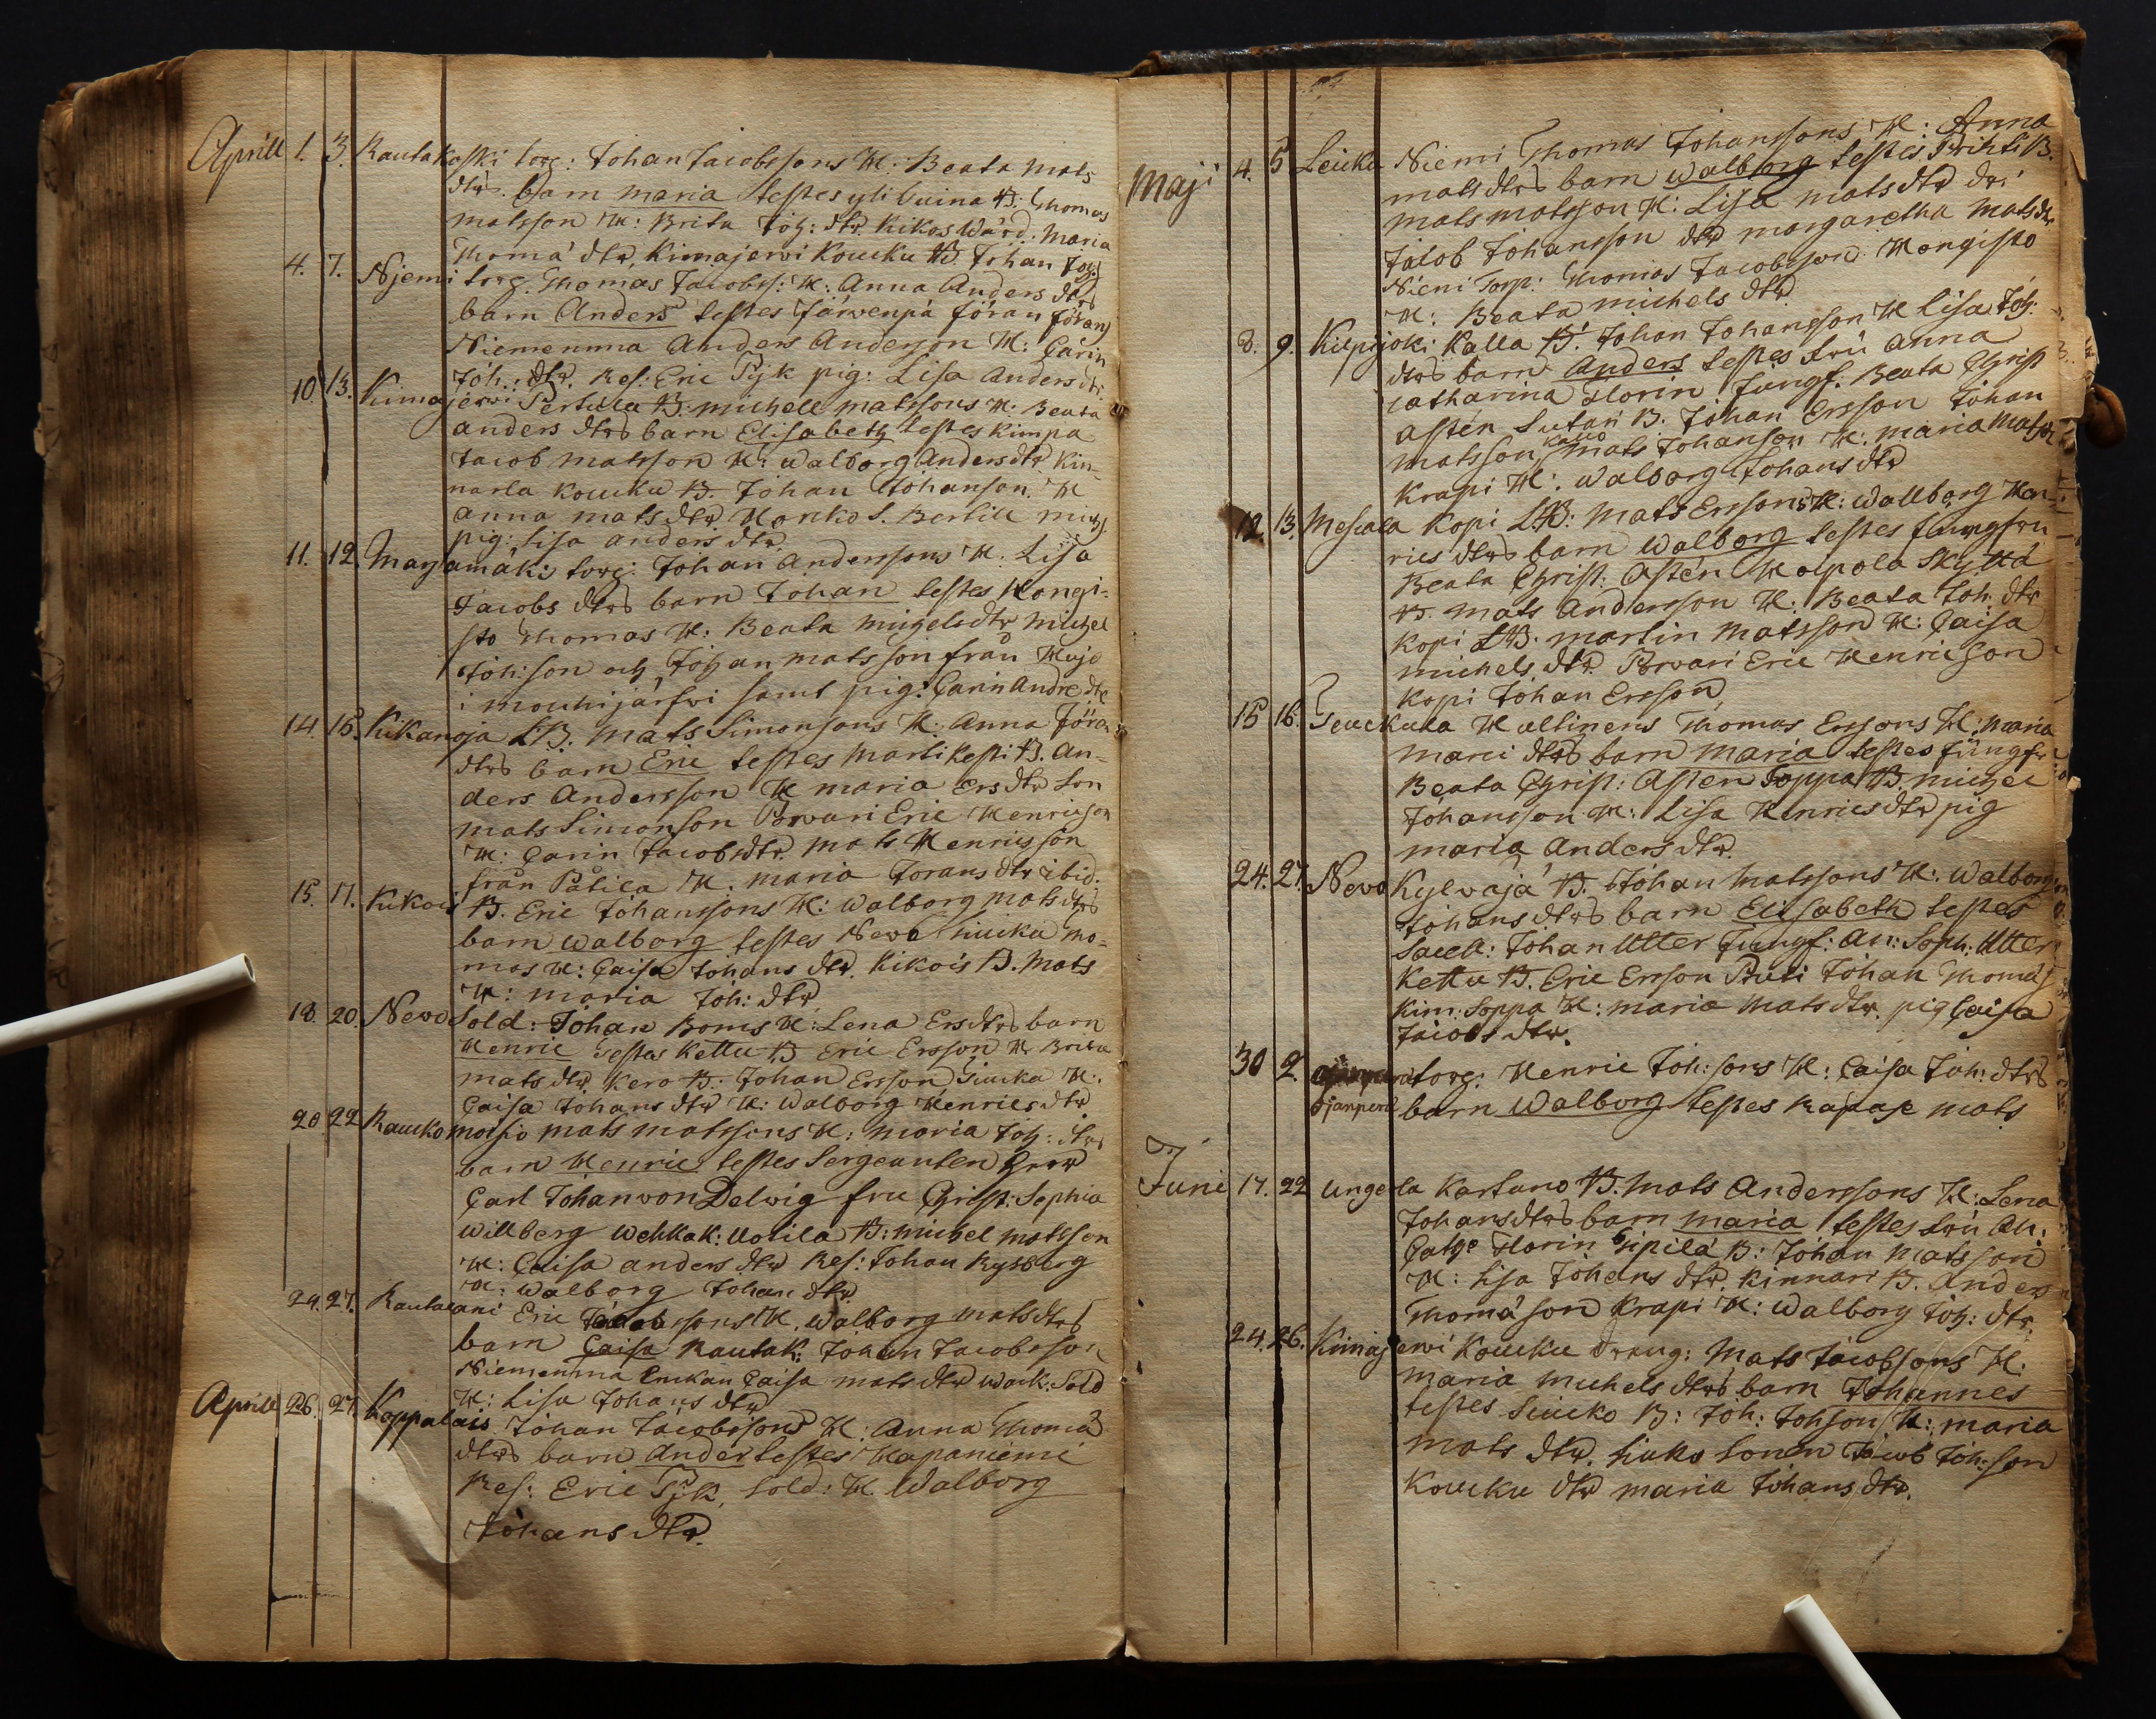 Aprill 1. 3. Rautakoski torp: Johan Jacobssons H: Beata Mats
dtrs. barn maria testes yli Vuina B: Thomas
matsson H: Brita Joh: dtr. Kikos Wärd: Maria
Thomä dtr, Kimajerwi Koucku B. Johan Joh:
4. 7. Njemi torp. Thomas Jacobss: H: Anna Anders dtrs
barn Anders testes Järwenpä Jöran Jörans
Niemenma Anders Anderson H: Carin
Joh: dtr. Ref: Eric Pijk pig: Lisa Anders dtr.
10. 13. Kimajerwi Perttula B. michell matssons H: Beata
anders dtrs barn Elisabeth testes Kimpa
Jacob matsson H: Walborg Anders dtr. Kin-
narla Koucku B. Johan Johanson. H
anna mats dtr. Honko S. Bertill mich:
pig: Lisa anders dtr.
11. 12. Maylamäki torp: Johan Anderssons H. Lisa
Jacobs dtrs barn Johan testes Hongi-
sto Thomas H: Beata migels dtr michel
Joh:son och Johan matsson från Heijo
i mouhijärfvi samt pig: Carin Andre dtr
14. 15. Kikanoja LB: Mats Simonsons H: Anna Jöran
dtrs barn Eric testes Martikesti B. An-
ders Andersson H maria Ers dtr Son
mats Simonson Porvari Eric Henricson
H: Carin Jacobs dtr. Mats Henricsson
från Pätila H. maria Jorans dtr ibid.
15. 17. Kikois B. Eric Johanssons H: Walborg mats dtrs
barn Walborg testes Nevo Siucku Tho-
mas H: Caisa Johans dtr. Kikois B. Mats
H: maria Joh: dtr
18. 20. Nevo Sold: Johan Boms H: Lena Ers dtrs barn
Henric Testes Kettu B Eric Ersson H Brita
mats dtr Kero B: Johan Ersson Siucku H:
Caisa Johans dtr H: Walborg Henrics dtr
20 22 Rauckomoisio mats matssons H: maria Joh: dtrs
barn Henric testes Sergeanten Herr
Carl Johan von Delwig fru Christ: Sophia
Willberg Wehkak: Uotila B: michel matsson
H: Caisa anders dtr Ref: Johan Rysberg
H: Walborg Johans dtr
24. 27. Rautalani Eric Jacobssons H. Walborg mats dtrs
barn Caisa Rautak: Johan Jacobsson
Niemenma Enckan Caisa mats dtr Wack: Sold
H: Lisa Johans dtr
Aprill 26. 27. Koppalais Johan Jacobssons H: Anna Thomä
dtrs barn Ander testes Hapaniemi
Ref: Eric Pijk, Sold: H Walborg
Johans dtr.
Maji 4. 5 Leuku Niemi Thomas Johanssons H: Anna
mats dtrs barn Walborg testes Prihti B.
mats matsson H: Lisa mats dtr dr:
Jacob Johansson dtr margaretha Mats dtr
Niemi Torp: Thomas Jacobsson Hongisto
H: Beata michels dtr
8. 9. Kilpijoki Kalla B: Johan Johansson H Lisa Joh:
dtrs barn Anders testes Fru Anna
Catharina Florin Jungf. Beata Christ
Astén Sutari B. Johan Ersson Johan
matsson, Kallo mats Johanson H: maria Mats dtr
Krapi H: Walborg Johans dtr
12. 13. Mescala Kopi LB: Mats Erssons H: Wallborg Hen-
rics dtrs barn Walborg testes Jungfru
Beata Christ: Astén Holpola Skyttä
B. Mats Andersson H: Beata Joh. dtr
Kopi LB. martin Matsson H: Caisa
michels dtr Porvari Eric Henricson
Kopi Johan Ersson
15 16. Teuckula Hultinens Thomas Erssons H: Maria
marci dtrs barn maria testes Jungfr
Beata Christ: Asten Soppa B. michel
Johansson H: Lisa Henrics dtr pig
maria Anders dtr.
24. 27. Nevo Kylvajä B. Johan Matssons H: Walborg
Johans dtrs barn Elisabeth testes
Sacell: Johan Utter Jungf: An: Soph: Utter
Kettu B. Eric Ersson Pruti Johan Thomäs
Kim: Soppa H: maria Mats dtr. pig Caisa
Jacobs dtr.
30 2. torp: Henric Joh:sons H: Caisa Joh: dtrs
Ojanperä barn Walborg testes Rapase mats
Juni 17. 22 Ungerla Kartano B. Mats Anderssons H: Lena
Johans dtrs barn maria testes Fru An:
Cathe Florin Sipilä B: Johan Matsson
H: Lisa Johans dtr. Kinnari B. Anders
Thomä son Krapi H: Walborg Joh: dtr.
24. 26. Kimajerwi Koucku Dreng: Mats Jacobssons H.
maria michels dtrs barn Johannes
testes Siucko B: Joh: Johson H: maria
mats dtr. Siuko Sonen Jacob Joh:son
Koucku dtr maria Johans dtr.